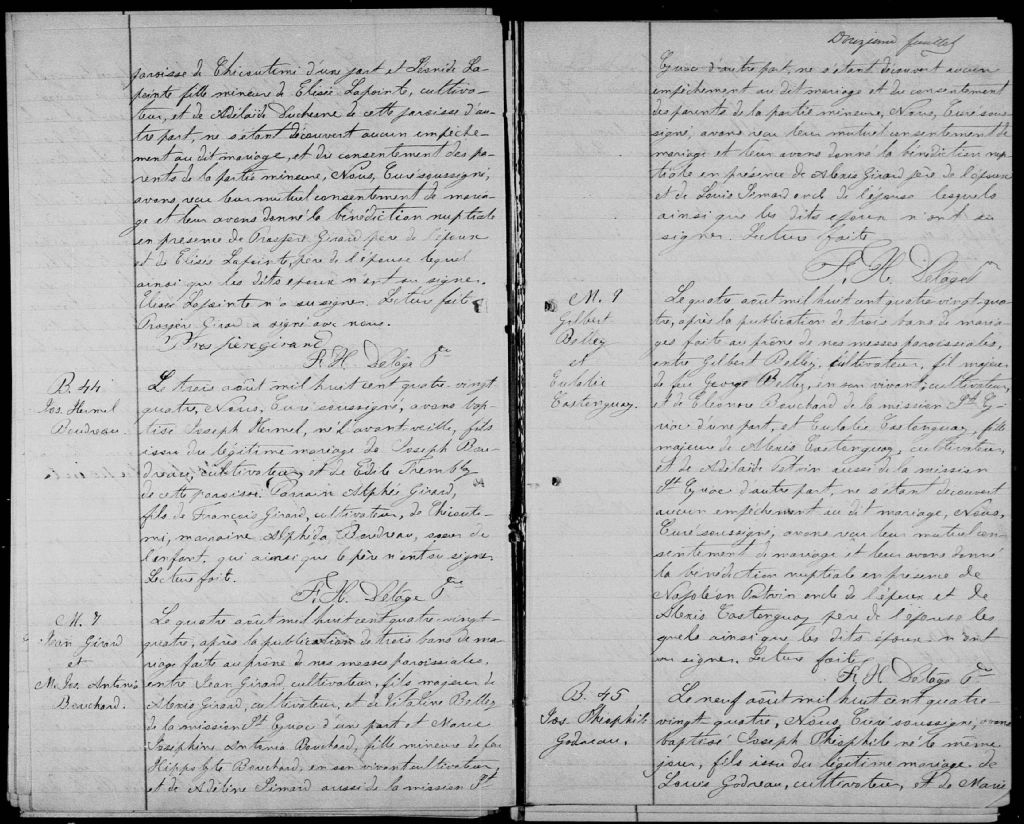 paroisse de Chicoutimi d'une part et Léonide La-
pointe fille mineure de Elisée Lapointe, cultiva-
teur, et de Adélaïde Duchesne de cette paroisse d'au-
tre part, ne s'étant découvert aucun empêche-
ment au dit mariage, et du consentement des pa-
rents de la partie mineure, Nous, Curé soussigné,
avons reçu leur mutuel consentement de maria-
ge et leur avons donné la bénédiction nuptiale
en présence de Prospère Girard père de l'époux
et de Elisée Lapointe, père de l'épouse lequel
ainsi que les dits époux n'ont su signer.
Elisée Lapointe n'a su signer. Lecture faite
Prospère Girard a signé avec nous.
Prospère girard
F. H. Delage Ptre
B. 44
Jos. Hermel
Boudreau.
Le trois août mil huit cent quatre-vingt
quatre, Nous, Curé soussigné, avons bap-
tisé Joseph Hermel, né l'avant veille, fils
issu du légitime mariage de Joseph Bou-
dreau, cultivateur, et de Edile Tremblay
de cette paroisse. Parrain Alphée Girard,
fils de François Girard, cultivateur, de Chicouti-
mi, marraine Alphéda Boudreau, soeur de
l'enfant, qui ainsi que le père n'ont su signer
Lecture faite.
F. H. Delage Ptre
M. 7
Jean Girard
et
M. Jos. Antonia
Bouchard.
Le quatre août mil huit cent quatre-vingt-
quatre, après la publication de trois bans de ma-
riage faite au prône de nos messes paroissiales,
entre Jean Girard, cultivateur, fils majeur de
Alexis Girard, cultivateur, et de Vitaline Belley
de la mission St Cyriac d'une part et Marie
Joséphine Antonia Bouchard, fille mineure de feu
Hippolyte Bouchard, en son vivant cultivateur,
et de Adéline Simard aussi de la mission St
Douzième feuillet
Cyriac d'autre part, ne s'étant découvert aucun
empêchement au dit mariage et du consentement
des parents de la partie mineure, Nous, Curé sous-
signé, avons reçu leur mutuel consentement de
mariage et leur avons donné la bénédiction nup-
tiale en présence de Alexis Girard père de l'époux
et de Louis Simard oncle de l'épouse lesquels
ainsi que les dits époux n'ont su
signer. Lecture faite
F. H. Delage Ptre
M. 9
Gilbert
Belley
et
Eulalie
Gasterguay.
Le quatre août mil huit cent quatre vingt-qua-
tre, après la publication de trois bans de maria-
ges faite au prône de nos messes paroissiales,
entre Gilbert Belley, cultivateur, fils majeur
de feu George Belley, en son vivant, cultivateur,
et de Eléonore Bouchard de la mission St Cy-
riac d'une part, et Eulalie Gasterguay, fille
majeure de Alexis Gasterguay, cultivateur,
et de Adélaïde Potvin aussi de la mission
St Cyriac d'autre part, ne s'étant découvert
aucun empêchement au dit mariage, Nous,
Curé soussigné, avons reçu leur mutuel con-
sentement de mariage et leur avons donné
la bénédiction nuptiale en présence de
Napoléon Potvin oncle de l'époux et de
Alexis Gasterguay père de l'épouse les
quels ainsi que les dits époux n'ont
su signer. Lecture faite
F. H. Delage Ptre
B. 45
Jos. Théophile
Godreau.
Le neuf août mil huit cent quatre-
vingt quatre, Nous, Curé soussigné, avons
baptisé Joseph Théophile né le même
jour, fils issu du légitime mariage de
Louis Godreau, cultivateur, et de Marie